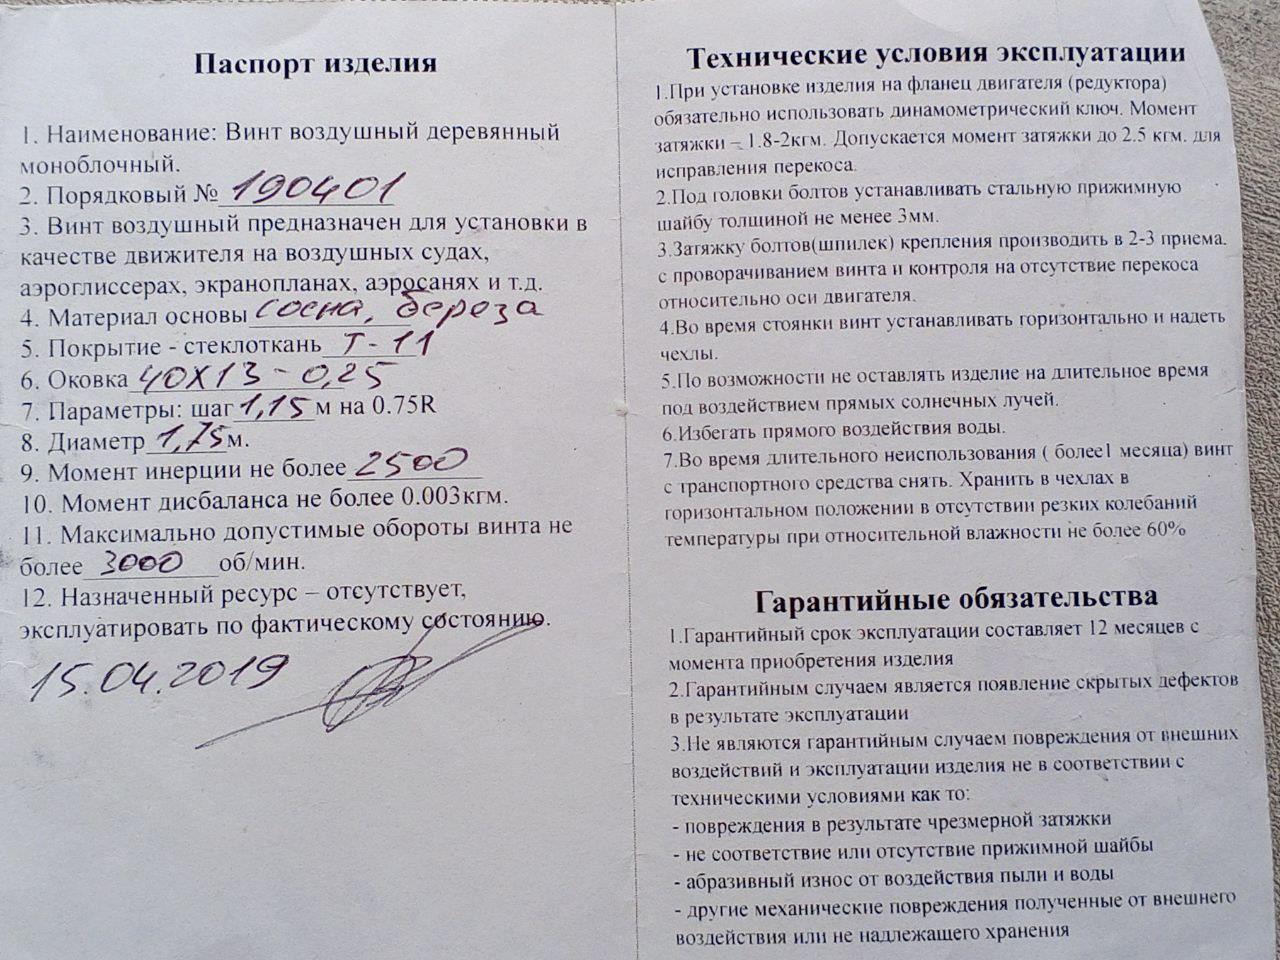 Паспорт изделия
1. Наименование: Винт воздушный деревянный
моноблочный.
2. Порядковый № 190401
3. Винт воздушный предназначен для установки в
качестве движителя на воздушных судах,
аэроглиссерах, экранопланах, аэросанях и т.д.
4. Материал основы сосна, береза
5. Покрытие - стеклоткань Т-11
6. Оковка 40Х13-0,25
7. Параметры: шаг 1,15 м на 0.75R
8. Диаметр 1,75 м.
9. Момент инерции не более 2500
10. Момент дисбаланса не более 0.003кгм.
11. Максимально допустимые обороты винта не
более 3000 об/мин.
12. Назначенный ресурс – отсутствует,
эксплуатировать по фактическому состоянию.
15.04.2019
Технические условия эксплуатации
1.При установке изделия на фланец двигателя (редуктора)
обязательно использовать динамометрический ключ. Момент
затяжки – 1.8-2кгм. Допускается момент затяжки до 2.5 кгм. для
исправления перекоса.
2.Под головки болтов устанавливать стальную прижимную
шайбу толщиной не менее 3мм.
3.Затяжку болтов(шпилек) крепления производить в 2-3 приема.
с проворачиванием винта и контроля на отсутствие перекоса
относительно оси двигателя.
4.Во время стоянки винт устанавливать горизонтально и надеть
чехлы.
5.По возможности не оставлять изделие на длительное время
под воздействием прямых солнечных лучей.
6.Избегать прямого воздействия воды.
7.Во время длительного неиспользования ( более1 месяца) винт
с транспортного средства снять. Хранить в чехлах в
горизонтальном положении в отсутствии резких колебаний
температуры при относительной влажности не более 60%
Гарантийные обязательства
1.Гарантийный срок эксплуатации составляет 12 месяцев с
момента приобретения изделия
2.Гарантийным случаем является появление скрытых дефектов
в результате эксплуатации
3.Не являются гарантийным случаем повреждения от внешних
воздействий и эксплуатации изделия не в соответствии с
техническими условиями как то:
- повреждения в результате чрезмерной затяжки
- не соответствие или отсутствие прижимной шайбы
- абразивный износ от воздействия пыли и воды
- другие механические повреждения полученные от внешнего
воздействия или не надлежащего хранения